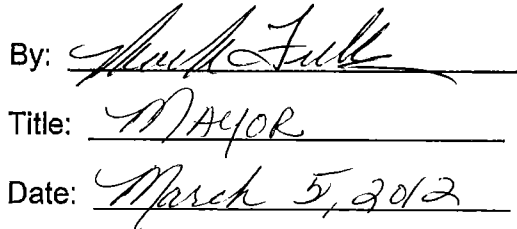 By:
Title: MAYOR
Date: March 5, 2012